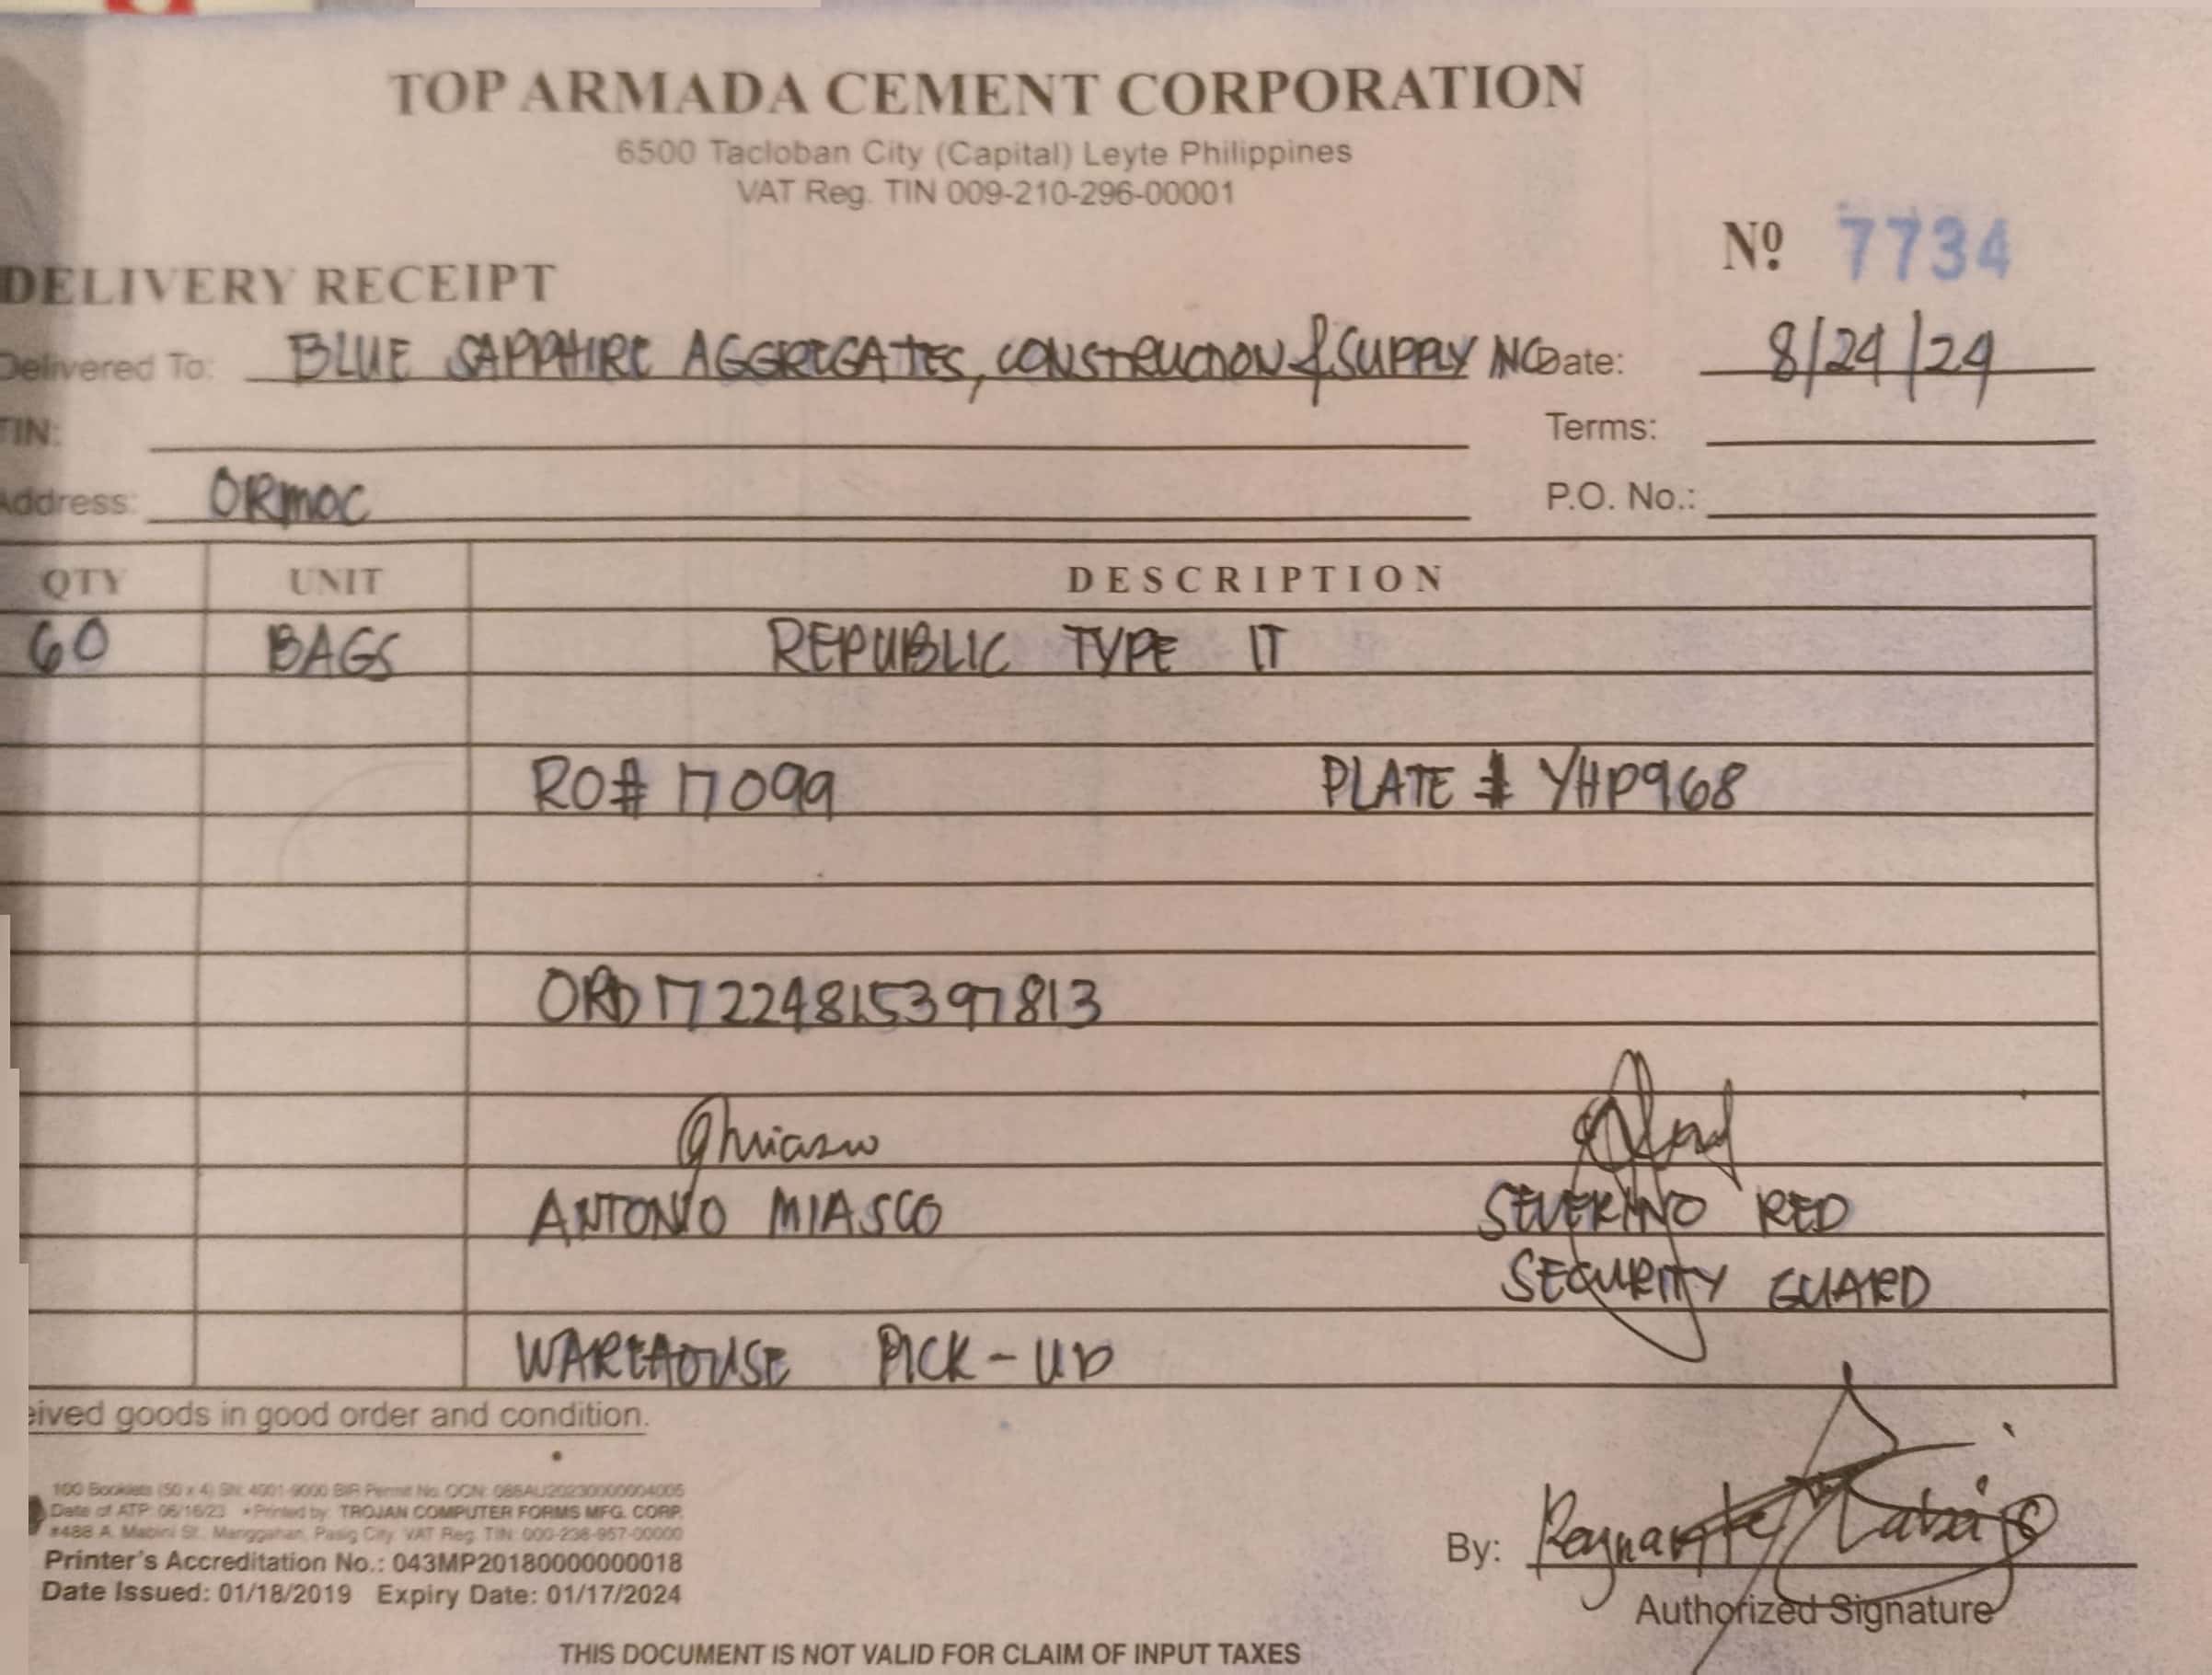 TOP ARMADA CEMENT CORPORATION
6500 Tacloban City (Capital) Leyte Philippines
VAT Reg. TIN 009-210-296-00001
Nº 7734
DELIVERY RECEIPT
Delivered To: BLUE SAPPHIRE AGGREGATES, CONSTRUCTION & SUPPLY INC Date: 8/24/24
TIN: Terms:
Address: ORMOC P.O. No.:
QTY UNIT DESCRIPTION
60 BAGS REPUBLIC TYPE IT
RO# 17099 PLATE # YHP968
ORD17224815397813
ANTONIO MIASCO SEVERINO RED
SECURITY GUARD
WAREHOUSE PICK-UP
eived goods in good order and condition.
100 Booklets (50 x 4) SN: 4001-9000 BIR Permit No. OCN: 088AU20230000004005
Date of ATP: 06/16/23 • Printed by: TROJAN COMPUTER FORMS MFG. CORP.
#488 A. Mabini St., Manggahan, Pasig City. VAT Reg. TIN: 000-238-957-00000
Printer's Accreditation No.: 043MP20180000000018
Date Issued: 01/18/2019 Expiry Date: 01/17/2024
By:
Authorized Signature
THIS DOCUMENT IS NOT VALID FOR CLAIM OF INPUT TAXES